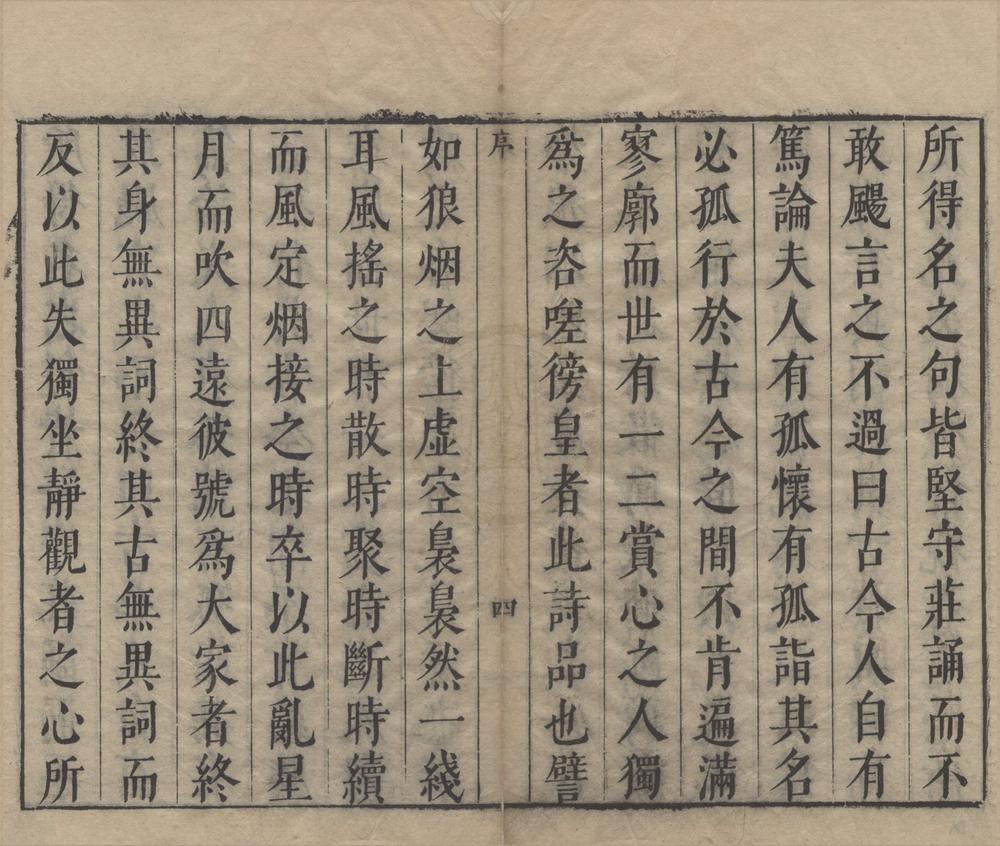 所得名之句皆堅守莊誦而不
敢颺言之不過曰古今人自有
篤論夫人有孤懷有孤詣其名
必孤行於古今之間不肯遍滿
寥廓而世有一二賞心之人獨
爲之咨嗟徬皇者此詩品也譬
序
四
如狼烟之上虛空裊裊然一綫
耳風搖之時散時聚時斷時續
而風定烟接之時卒以此亂星
月而吹四遠彼號爲大家者終
其身無異詞終其古無異詞而
反以此失獨坐靜觀者之心所